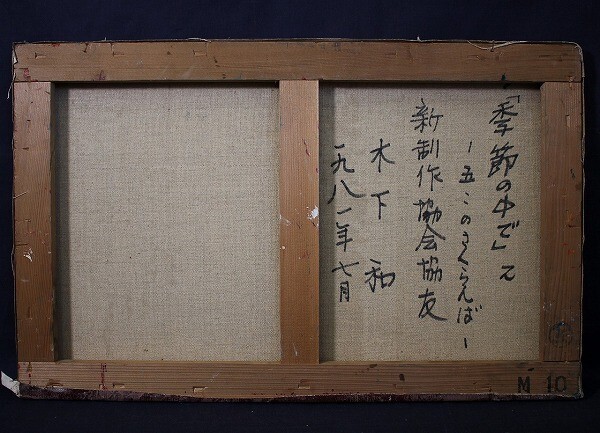 「季節の中で」て
ー五このさくらんぼー
新制作協会協友
木下和
一九八一年七月
M 10